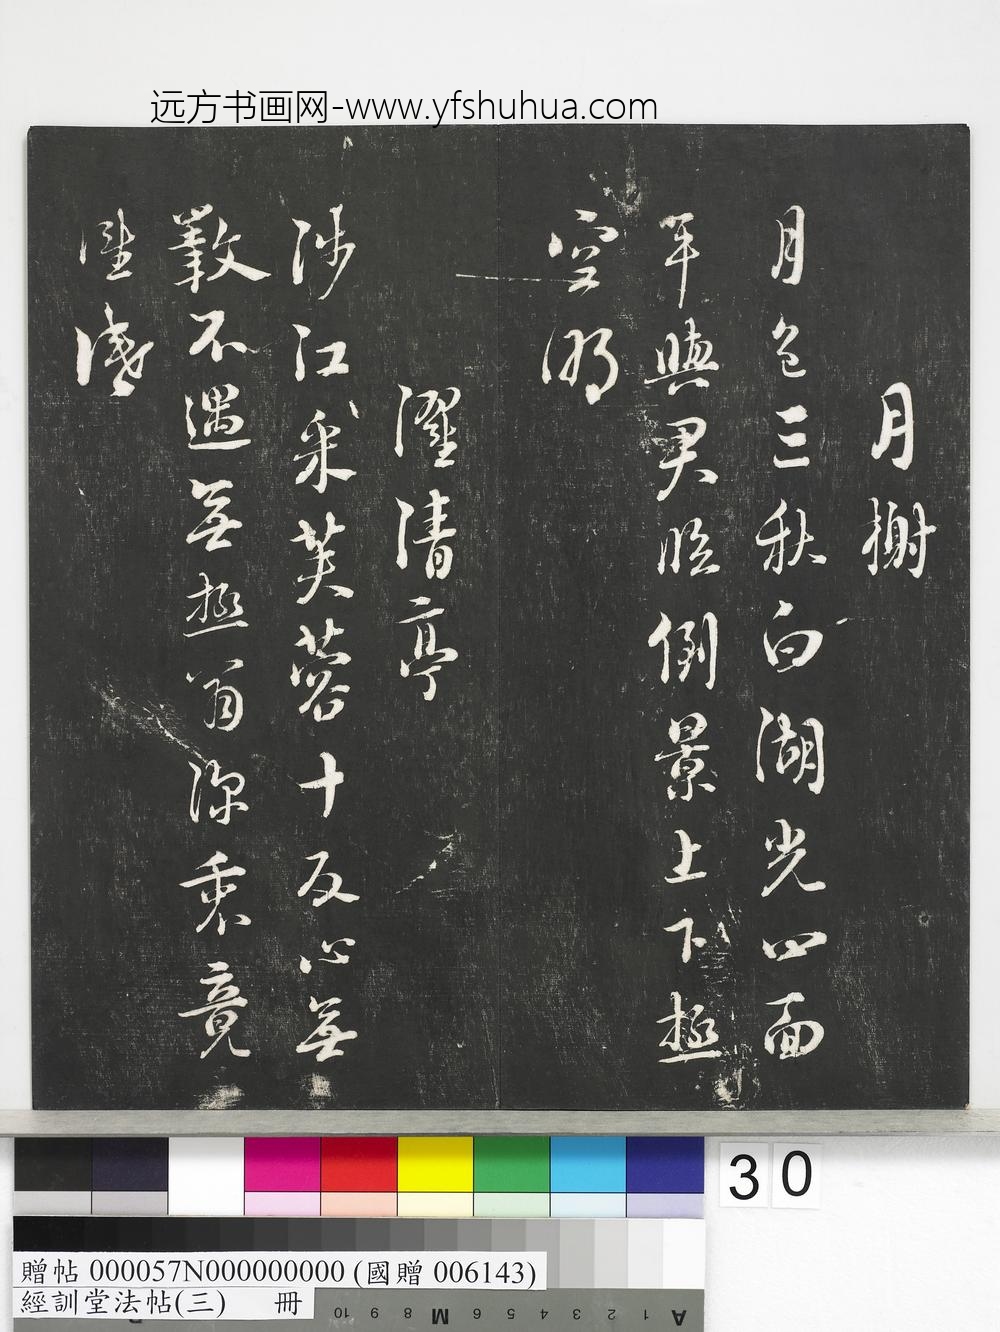 远方书画网-www.yfshuhua.com
月榭
月色三秋白湖光四面
平與君臨倒景上下極
空明
濯清亭
涉江采芙蓉十反心無
斁不遇無極翁深衷竟
誰識
30
贈帖 000057N000000000 (國贈 006143)
經訓堂法帖(三) 冊
A 1 2 3 4 5 6 M 8 9 10